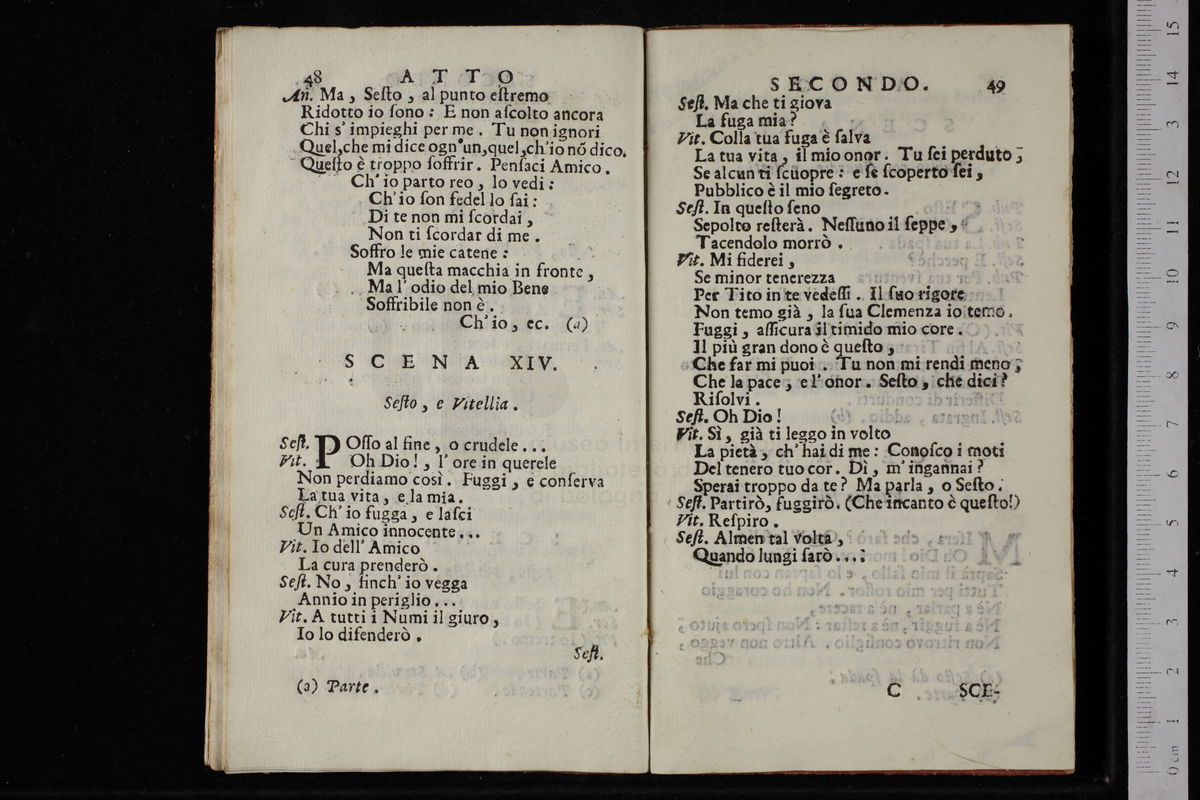 48 ATTO
An. Ma, Seſto, al punto eſtremo
Ridotto io ſono: E non aſcolto ancora
Chi s'impieghi per me. Tu non ignori
Quel, che mi dice ogn'un, quel, ch'io nõ dico.
Queſto è troppo ſoffrir. Penſaci Amico.
Ch'io parto reo, lo vedi:
Ch'io ſon fedel lo ſai:
Di te non mi ſcordai,
Non ti ſcordar di me.
Soffro le mie catene:
Ma queſta macchia in fronte,
Ma l'odio del mio Bene
Soffribile non è.
Ch'io, ec. (a)
SCENA XIV.
Seſto, e Vitellia.
Seſt. POſſo al fine, o crudele...
Vit. Oh Dio!, l'ore in querele
Non perdiamo così. Fuggi, e conſerva
La tua vita, e la mia.
Seſt. Ch'io fugga, e laſci
Un Amico innocente...
Vit. Io dell'Amico
La cura prenderò.
Seſt. No, finch'io vegga
Annio in periglio...
Vit. A tutti i Numi il giuro,
Io lo difenderò.
Seſt.
(a) Parte.
SECONDO. 49
Seſt. Ma che ti giova
La fuga mia?
Vit. Colla tua fuga è ſalva
La tua vita, il mio onor. Tu ſei perduto;
Se alcun ti ſcuopre: e ſe ſcoperto ſei,
Pubblico è il mio ſegreto.
Seſt. In queſto ſeno
Sepolto reſterà. Neſſuno il ſeppe,
Tacendolo morrò.
Vit. Mi fiderei,
Se minor tenerezza
Per Tito in te vedeſſi. Il ſuo rigore
Non temo già, la ſua Clemenza io temo.
Fuggi, aſſicura il timido mio core.
Il più gran dono è queſto,
Che far mi puoi. Tu non mi rendi meno;
Che la pace, e l'onor. Seſto, che dici?
Riſolvi.
Seſt. Oh Dio!
Vit. Sì, già ti leggo in volto
La pietà, ch'hai di me: Conoſco i moti
Del tenero tuo cor. Dì, m'ingannai?
Sperai troppo da te? Ma parla, o Seſto.
Seſt. Partirò, fuggirò. (Che incanto è queſto!)
Vit. Reſpiro.
Seſt. Almen tal volta,
Quando lungi ſarò...:
C SCE-